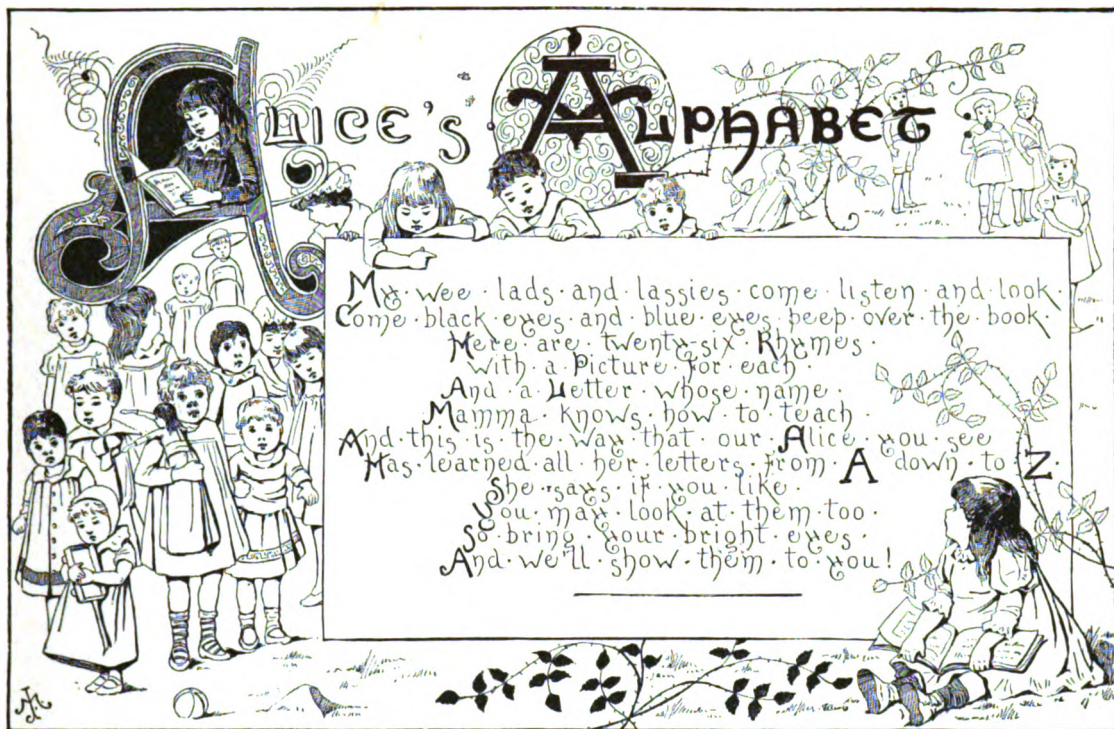 ALICE'S ALPHABET
My · wee · lads · and · lassies · come · listen · and · look ·
Come · black · eyes · and · blue · eyes · peep · over · the · book ·
Here · are · twenty-six · Rhymes ·
With · a · Picture · for · each ·
And · a · Letter · whose · name ·
Mamma · knows · how · to · teach ·
And · this · is · the · way · that · our · Alice · you · see
Has · learned · all · her · letters · from · A · down · to · Z ·
She · says · if · you · like ·
You · may · look · at · them · too ·
So · bring · your · bright · eyes ·
And · we'll · show · them · to · you!